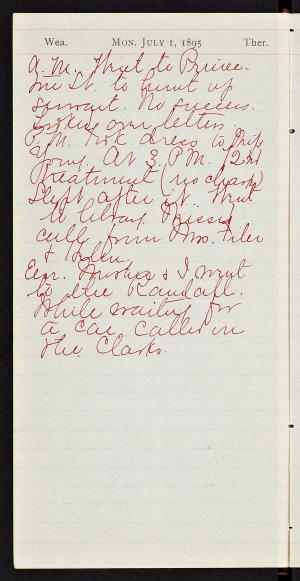 Wea. MON. JULY 1, 1895 Ther.
A.M. Went to Prince
St. to hunt up
servant. No success.
Looking over letters.
P.M. Took dress to Miss
At 3 P.M. 2nd
treatment (no charge)
Slept after it. Went
to library. Missed
call from Mrs. Tiler
& Helen.
Eve. & I went
to the Randall.
While waiting for
a car called on
the Clarks.